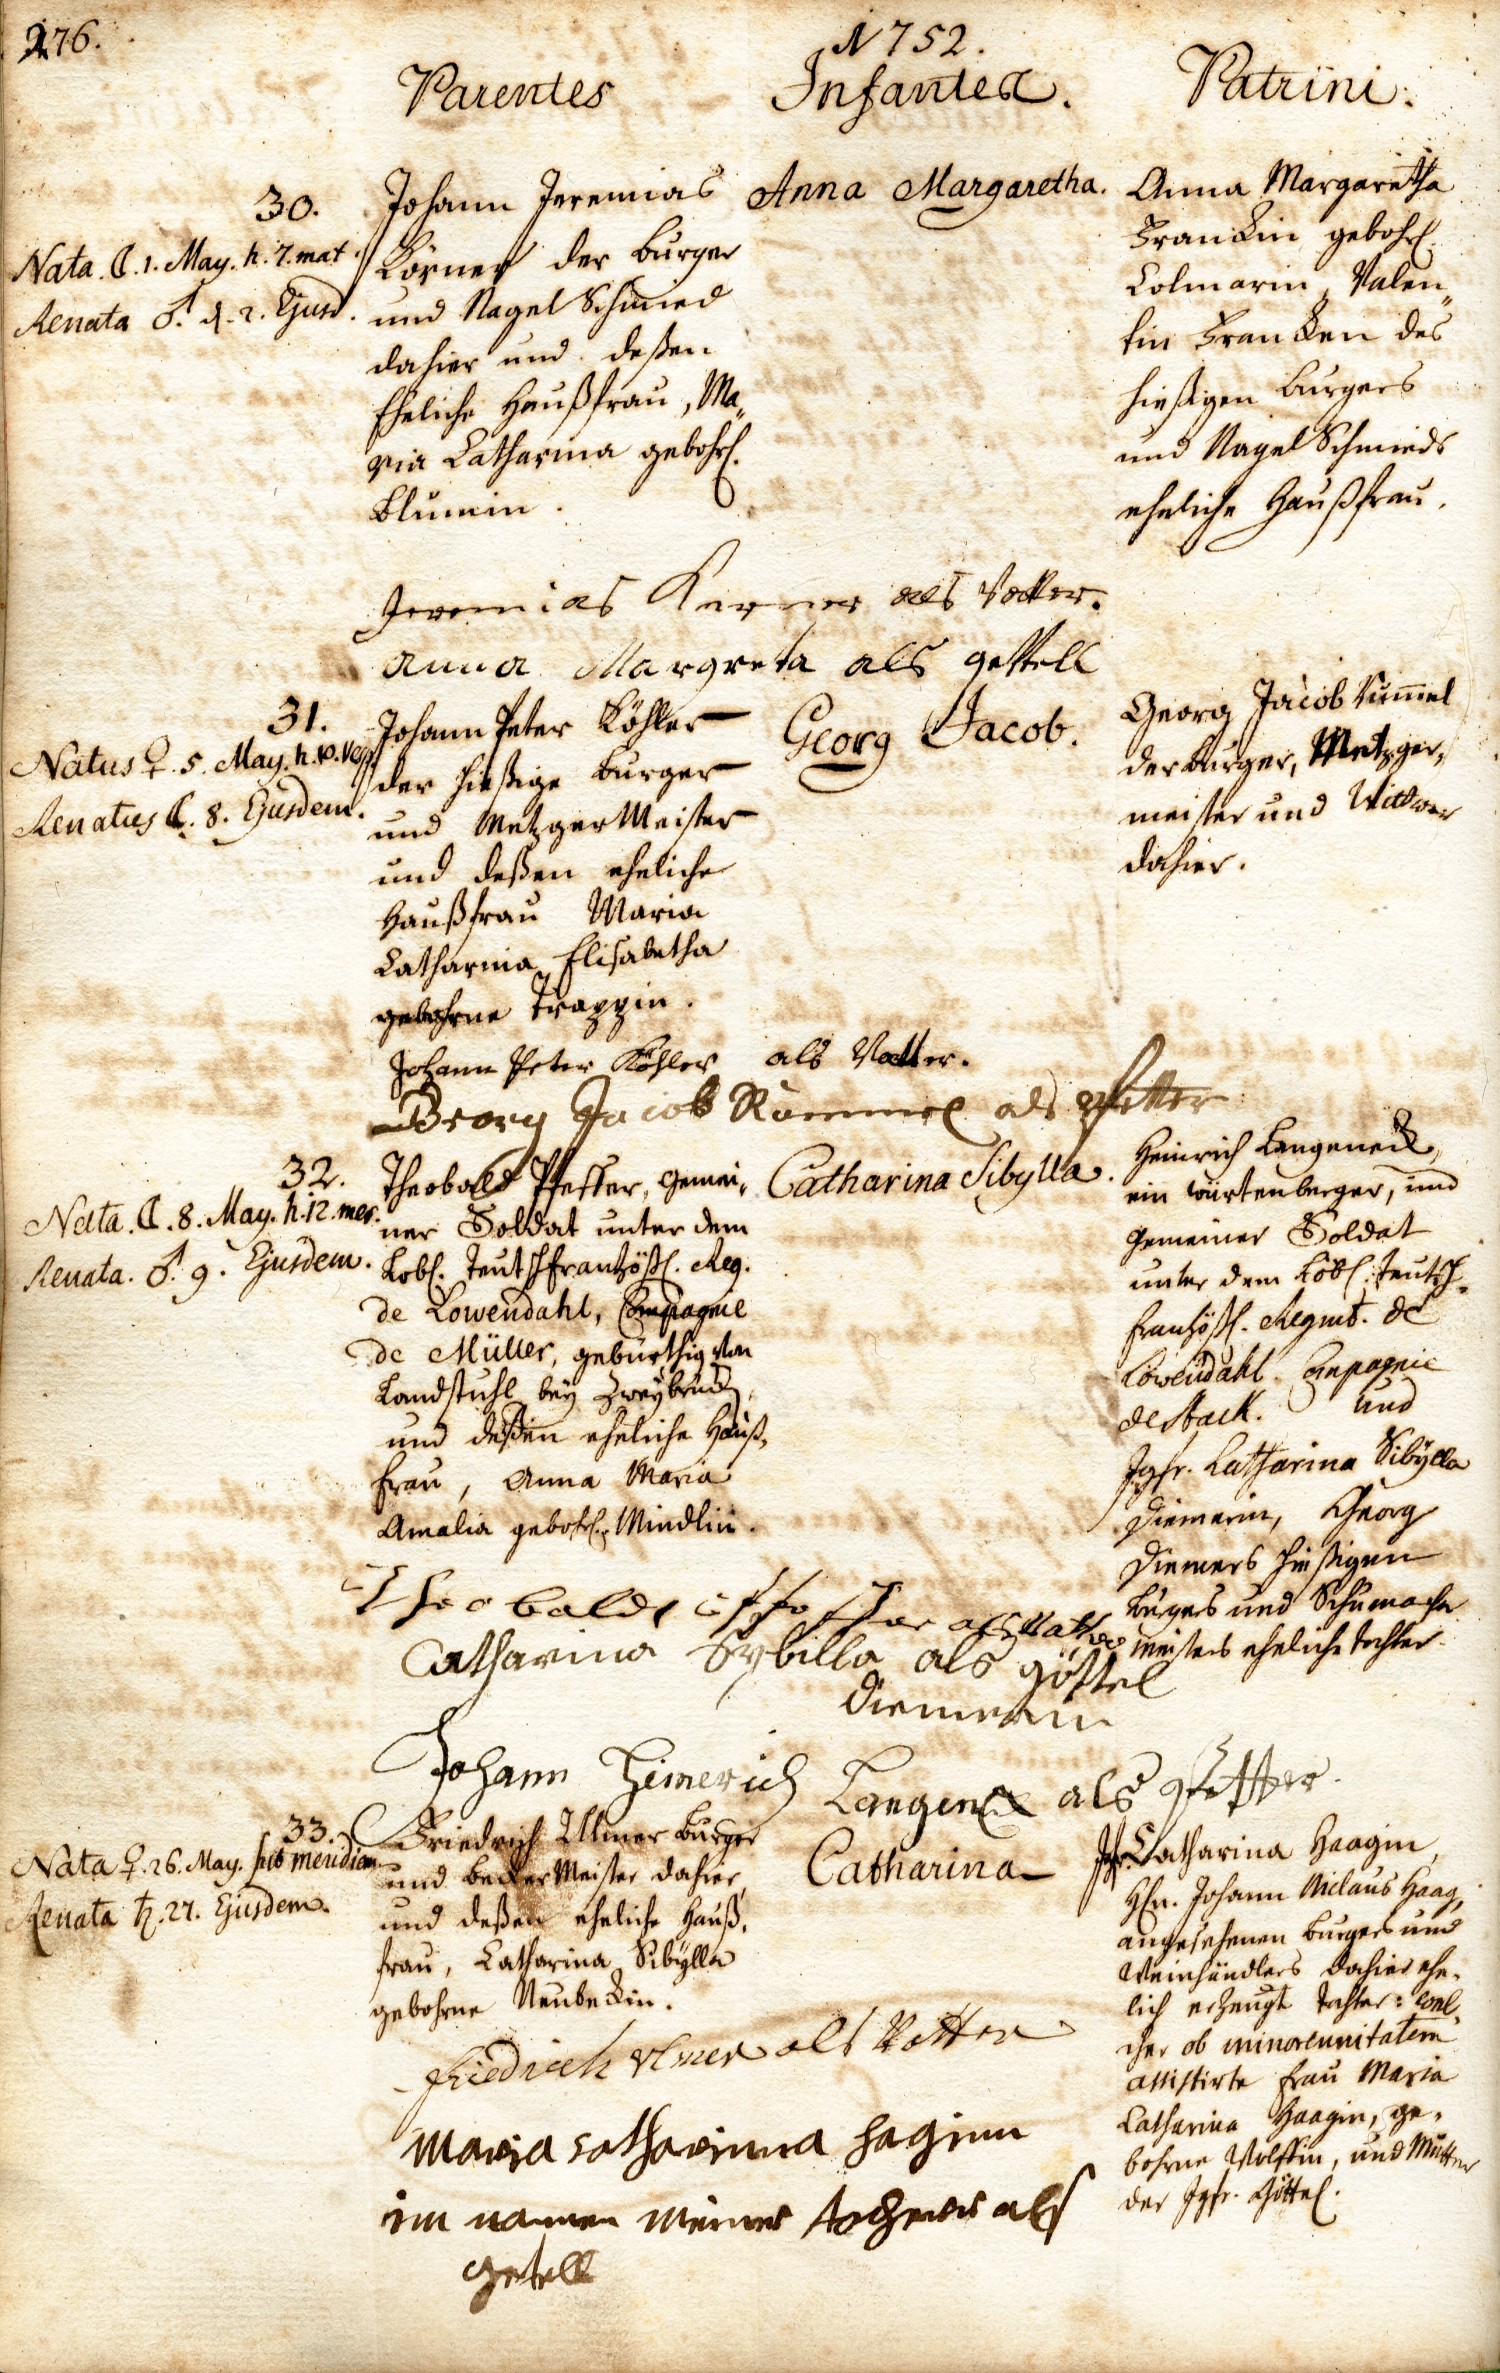 276.
1752.
Parentes
Infantes.
Patrini.
30.
Nata ☾. 1. May. h. 7. mat.
Renata ♂. d. 2. Ejusd.
Johann Jeremias
Körner der burger
und Nagel Schmied
dahier und deßen
Eheliche Haußfrau, Ma„
ria Catharina gebohrl.
Blumin.
Anna Margaretha.
Anna Margaretha
Franckin gebohrl.
Colmarin, Valen„
tin Francken des
hießigen burgers
und Nagel Schmieds
eheliche Haußfrau.
Jeremias Kerner als Vatter.
anna Margreta als gettell
31.
Natus ♀. 5. May. h. 10. Vesp.
Renatus ☾. 8. Ejusdem.
Johann Peter Köhler
der hießige burger
und Metzger Meister
und deßen eheliche
Haußfrau Maria
Catharina Elisabetha
gebohrne Trappin.
Georg Jacob.
Georg Jacob Rummel
der burger, Metzger„
meister und Wittwer
dahier.
Johann Peter Köhler als Vatter.
Georg Jacob Rummel als pfetter
32.
Nata. ☾. 8. May. h. 12. mer.
Renata. ♂. 9. Ejusdem.
Theobald Pfeffer, gemei„
ner Soldat unter dem
Lobl. Teutschfrantzößl. Reg.
de Lowendahl, Compagnie
de Müller, geburthig von
Landstuhl bey Zweybrück,
und deßen eheliche Hauß„
frau, Anna Maria
Amalia gebohrl. Mindlin.
Catharina Sibylla.
Heinrich Langeneck,
ein würtenberger, und
gemeiner Soldat
unter dem Löbl. Teutsch„
frantzößl. Regmt. de
Löwendahl. Compagnie
de Stack. und
Jgfr. Catharina Sibylla
Diemerin, Georg
Diemers hießigen
burgers und Schumacher
meisters eheliche tochter.
Theobald als Vatter
Catharina Sybilla als göttel
Diemerin
Johann Heinerich Langeneck als Pfetter.
33.
Nata ♀. 26. May. sub meridiem
Renata ♄. 27. Ejusdem.
Friedrich Ulmer burger
und becker Meister dahier,
und deßen eheliche Hauß„
frau, Catharina Sibylla
gebohrne Neubeckin.
Catharina
Jgfr. Catharina Haagin,
Hln. Johann Niclaus Haag,
angesehenen burgers und
Weinhändlers dahier ehe„
lich erzeugte tochter: wel„
cher ob minorennitatem
assistirte Frau Maria
Catharina Haagin, ge„
bohrne Wolffin, und Mutter
der Jgfr. Göttel.
friedrich Ulmer als Vatter
Maria catharinna haginn
im namen meiner tochter als
getell